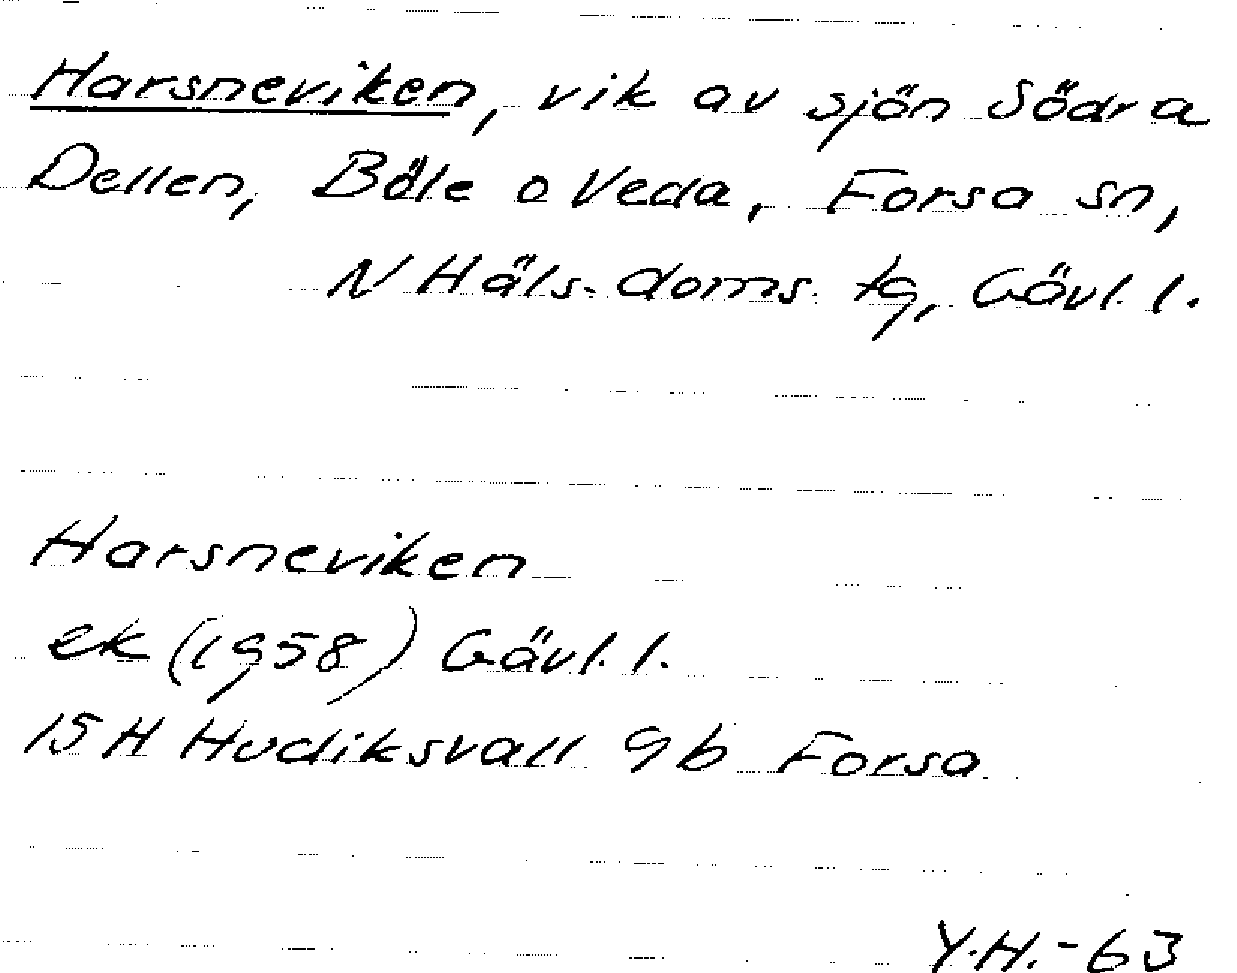 Harsneviken, vik av sjön Södra
Dellen, Böle o Veda, Forsa sn,
N Häls. doms. tg, Gävl. l.
Harsneviken
ek (1958) Gävl. l.
15 H Hudiksvall 9b Forsa
Y.H.-63